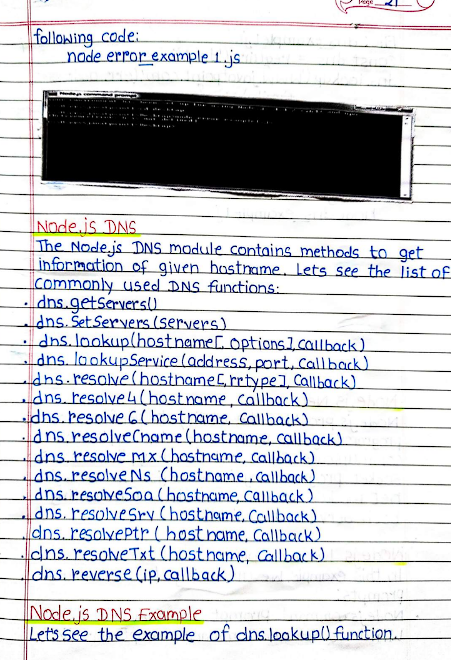 Page 21
following code:
node error_example 1.js
Node.js DNS
The Node.js DNS module contains methods to get
information of given hostname. Lets see the list of
commonly used DNS functions:
• dns.getServers()
• dns.SetServers(servers)
• dns.lookup(hostname[, options], callback)
• dns.lookupService(address, port, Callback)
• dns.resolve(hostname[, rrtype], Callback)
• dns.resolve4(hostname, callback)
• dns.resolve 6(hostname, Callback)
• dns.resolveCname(hostname, callback)
• dns.resolve mx(hostname, callback)
• dns.resolveNs (hostname, callback)
• dns.resolveSoa(hostname, Callback)
• dns.resolveSrv(hostname, Callback)
dns.resolvePtr (hostname, Callback)
• dns.resolveTxt(hostname, Callback)
• dns.reverse(ip, callback)
Node.js DNS Example
Let's see the example of dns.lookup() function.